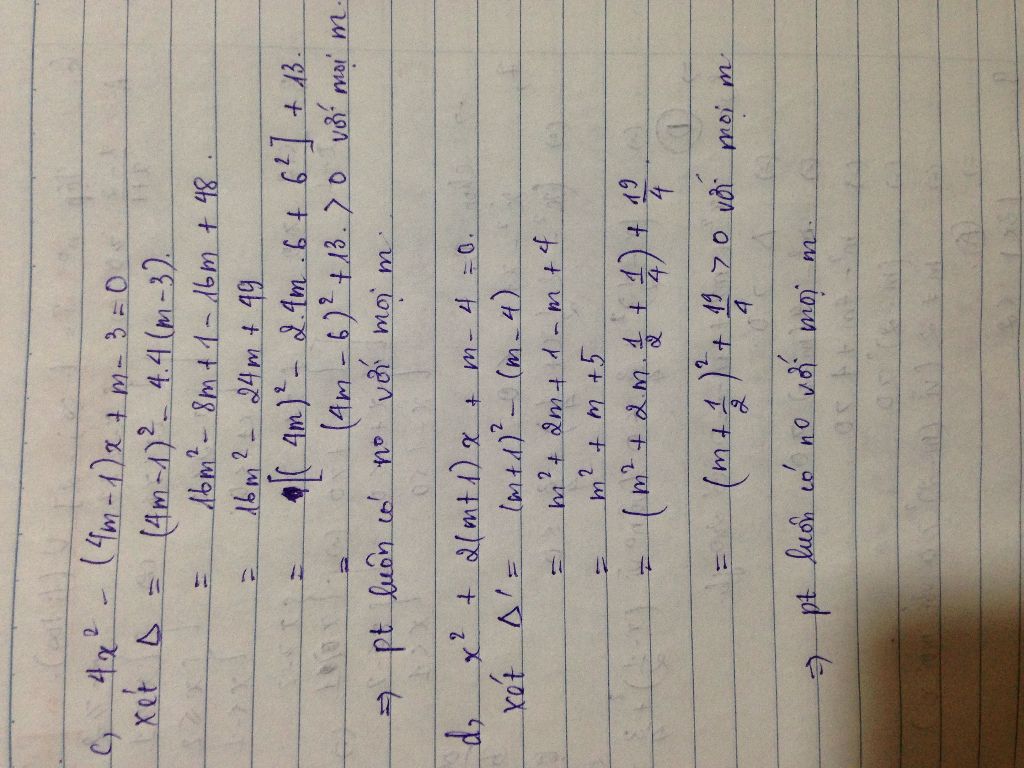 c, 4x² - (4m-1)x + m - 3 = 0
xét Δ = (4m-1)² - 4.4(m-3).
= 16m² - 8m + 1 - 16m + 48.
= 16m² - 24m + 49
= [(4m)² - 2.4m.6 + 6²] + 13.
= (4m - 6)² + 13. > 0 với mọi m.
⇒ pt luôn có no với mọi m.
d, x² + 2(m+1)x + m - 4 = 0.
xét Δ' = (m+1)² - (m-4)
= m² + 2m + 1 - m + 4
= m² + m + 5
= (m² + 2m.1/2 + 1/4) + 19/4.
= (m + 1/2)² + 19/4 > 0 với mọi m.
⇒ pt luôn có no với mọi m.